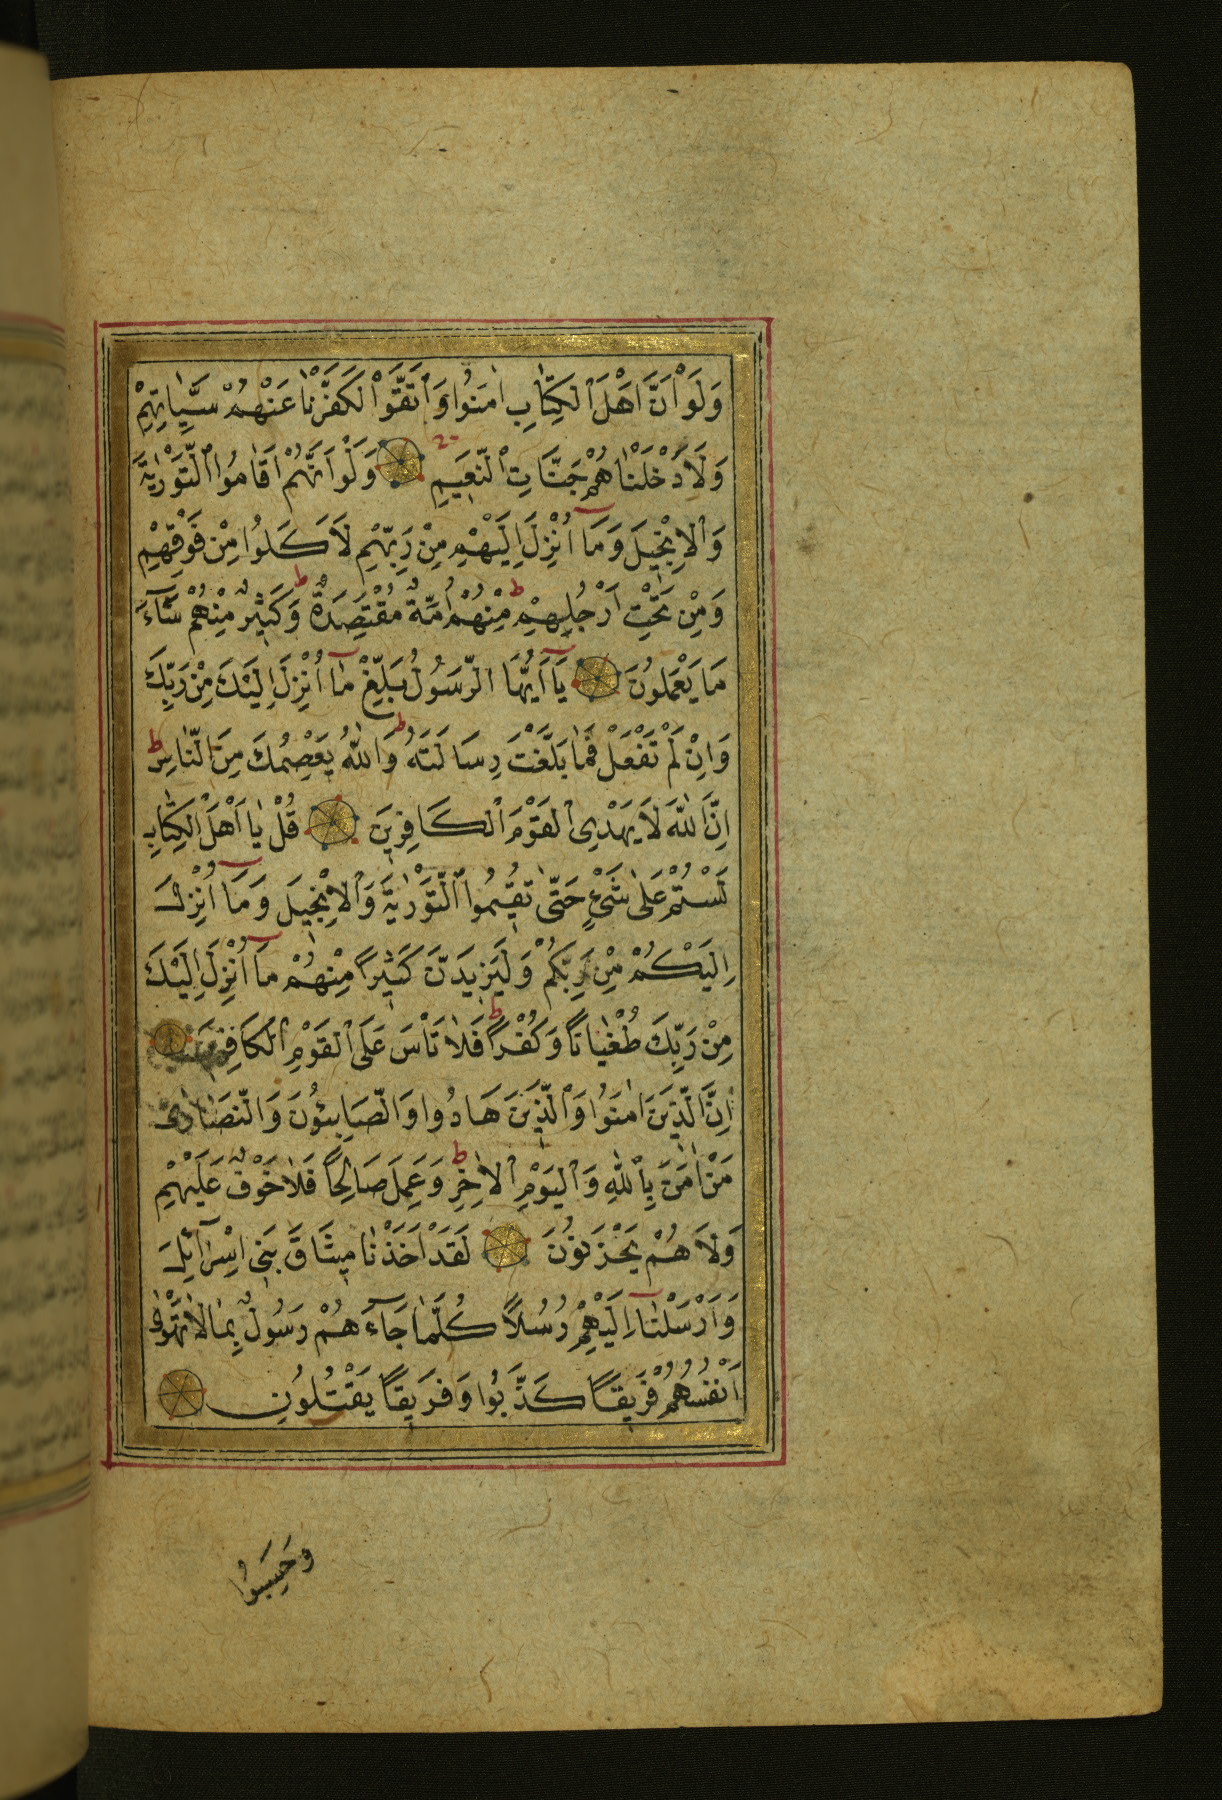 وَلَوْ اَنَّ اَهْلَ الْكِتَابِ اٰمَنُوا وَاتَّقَوْا لَكَفَّرْنَا عَنْهُمْ سَيِّاٰتِهِمْ
وَلَاَدْخَلْنَاهُمْ جَنَّاتِ النَّعِيمِ وَلَوْ اَنَّهُمْ اَقَامُوا التَّوْرٰيةَ
وَالْاِنْجِيلَ وَمَآ اُنْزِلَ اِلَيْهِمْ مِنْ رَبِّهِمْ لَاَكَلُوا مِنْ فَوْقِهِمْ
وَمِنْ تَحْتِ اَرْجُلِهِمْ ط مِنْهُمْ اُمَّةٌ مُقْتَصِدَةٌ ط وَكَثِيرٌ مِنْهُمْ سَآءَ
مَا يَعْمَلُونَ يَآ اَيُّهَا الرَّسُولُ بَلِّغْ مَآ اُنْزِلَ اِلَيْكَ مِنْ رَبِّكَ
وَاِنْ لَمْ تَفْعَلْ فَمَا بَلَّغْتَ رِسَالَتَهُ ط وَاللّٰهُ يَعْصِمُكَ مِنَ النَّاسِ ط
اِنَّ اللّٰهَ لَا يَهْدِى الْقَوْمَ الْكَافِرِينَ قُلْ يَا اَهْلَ الْكِتَابِ
لَسْتُمْ عَلٰى شَيْءٍ حَتّٰى تُقِيمُوا التَّوْرٰيةَ وَالْاِنْجِيلَ وَمَآ اُنْزِلَ
اِلَيْكُمْ مِنْ رَبِّكُمْ وَلَيَزِيدَنَّ كَثِيرًا مِنْهُمْ مَآ اُنْزِلَ اِلَيْكَ
مِنْ رَبِّكَ طُغْيَانًا وَكُفْرًا ط فَلَا تَاْسَ عَلَى الْقَوْمِ الْكَافِرِينَ
اِنَّ الَّذِينَ اٰمَنُوا وَالَّذِينَ هَادُوا وَالصَّابِئُونَ وَالنَّصَارٰى
مَنْ اٰمَنَ بِاللّٰهِ وَالْيَوْمِ الْاٰخِرِ ط وَعَمِلَ صَالِحًا فَلَا خَوْفٌ عَلَيْهِمْ
وَلَا هُمْ يَحْزَنُونَ لَقَدْ اَخَذْنَا مِيثَاقَ بَنِى اِسْرَآئِلَ
وَاَرْسَلْنَآ اِلَيْهِمْ رُسُلًا كُلَّمَا جَآءَهُمْ رَسُولٌ بِمَا لَا تَهْوٰى
اَنْفُسُهُمْ فَرِيقًا كَذَّبُوا وَفَرِيقًا يَقْتُلُونَ
وَحَسِبُوا